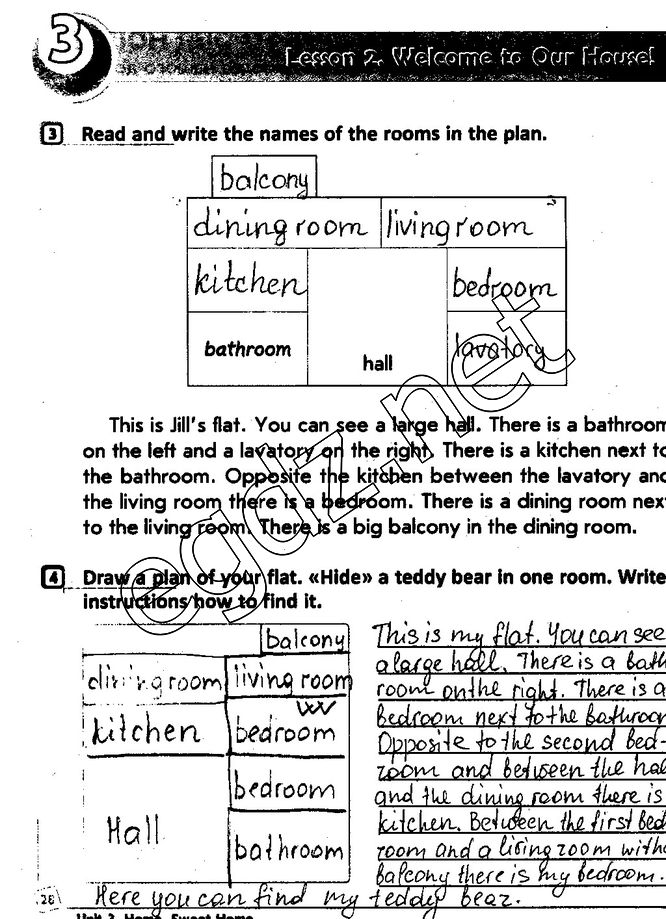 3
Lesson 2. Welcome to Our House!
3 Read and write the names of the rooms in the plan.
balcony
dining room living room
kitchen bedroom
bathroom hall lavatory
This is Jill's flat. You can see a large hall. There is a bathroom
on the left and a lavatory on the right. There is a kitchen next to
the bathroom. Opposite the kitchen between the lavatory and
the living room there is a bedroom. There is a dining room nex
to the living room. There is a big balcony in the dining room.
egdz.net
4 Draw a plan of your flat. «Hide» a teddy bear in one room. Write
instructions how to find it.
balcony
dining room living room
kitchen bedroom
bedroom
Hall bathroom
This is my flat. You can see
a large hall. There is a bath
room on the right. There is a
bedroom next to the bathroom
Opposite to the second bed-
room and between the hal
and the dining room there is
kitchen. Between the first bed
room and a living room with
balcony there is my bedroom.
Here you can find my teddy bear.
28
Unit 3. Home, Sweet Home